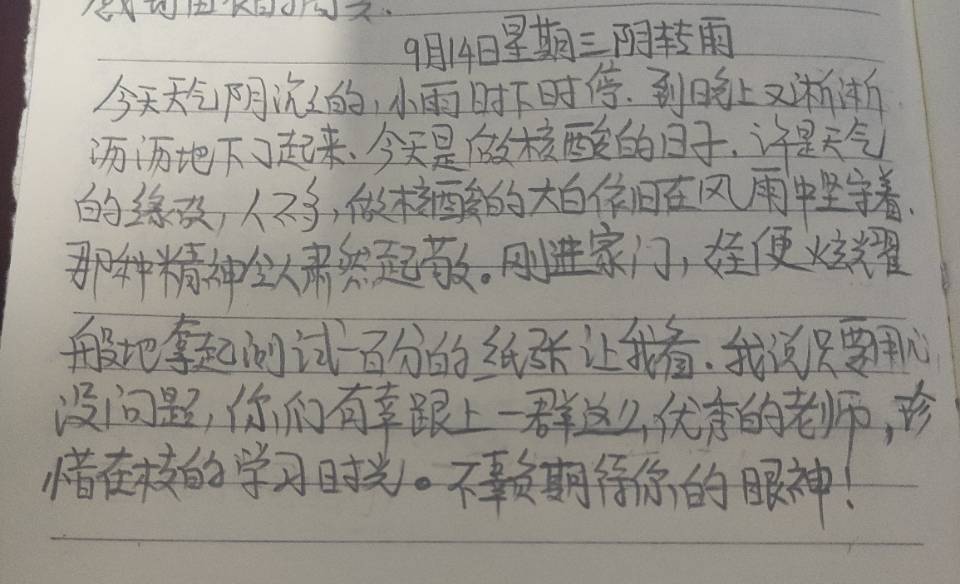 9月14日星期三阴转雨
今天天气阴沉沉的,小雨时下时停.到晚上又淅淅
沥沥地下了起来.今天是做核酸的日子.许是天气
的缘故,人不多,做核酸的大白依旧在风雨中坚守着.
那种精神令人肃然起敬。刚进家门,娃便炫耀
般地拿起测试一百分的纸张让我看.我说只要用心
没问题,你们有幸跟上一群这么优秀的老师,珍
惜在校的学习时光。不辜负期待你的眼神!